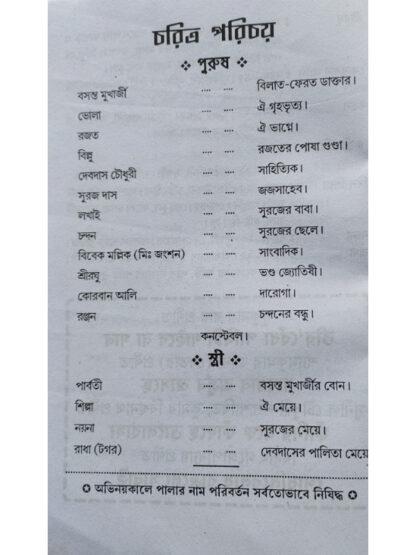 চরিত্র পরিচয়
❖ পুরুষ ❖
বসন্ত মুখার্জী .... .... বিলাত-ফেরত ডাক্তার।
ভোলা .... .... ঐ গৃহভৃত্য।
রজত .... .... ঐ ভাগ্নে।
বিল্লু .... .... রজতের পোষা গুণ্ডা।
দেবদাস চৌধুরী .... .... সাহিত্যিক।
সুরজ দাস .... .... জজসাহেব।
লখাই .... .... সুরজের বাবা।
চন্দন .... .... সুরজের ছেলে।
বিবেক মল্লিক (মিঃ জংশন) .... .... সাংবাদিক।
শ্রীরঘু .... .... ভণ্ড জ্যোতিষী।
কোরবান আলি .... .... দারোগা।
রঞ্জন .... .... চন্দনের বন্ধু।
কনস্টেবল।
❖ স্ত্রী ❖
পার্বতী .... .... বসন্ত মুখার্জীর বোন।
শিল্পা .... .... ঐ মেয়ে।
নয়না .... .... সুরজের মেয়ে।
রাধা (টগর) .... .... দেবদাসের পালিতা মেয়ে
✪ অভিনয়কালে পালার নাম পরিবর্তন সর্বতোভাবে নিষিদ্ধ ✪